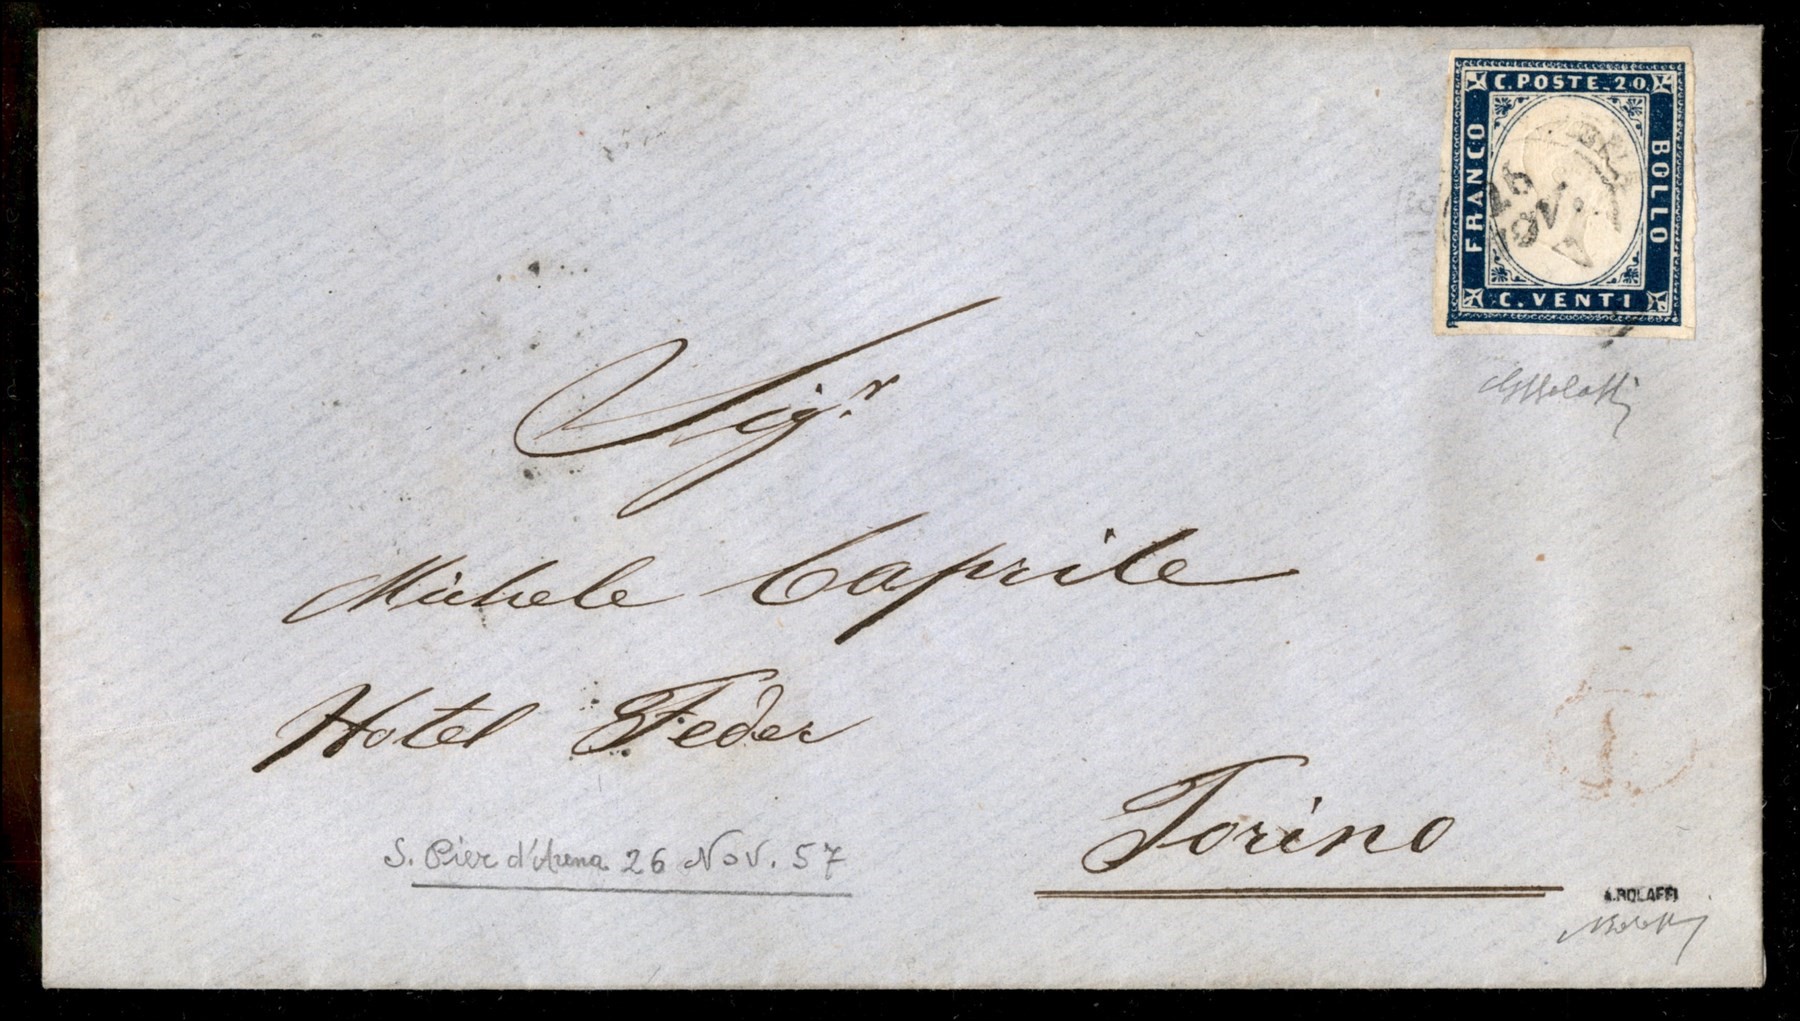 C. POSTE. 20.
FRANCO
BOLLO
C. VENTI
26
NOV.
Sig.r
Michele Caprile
Hotel Feder
Torino
S. Pier d'Arena 26 Nov. 57
A. BOLAFFI